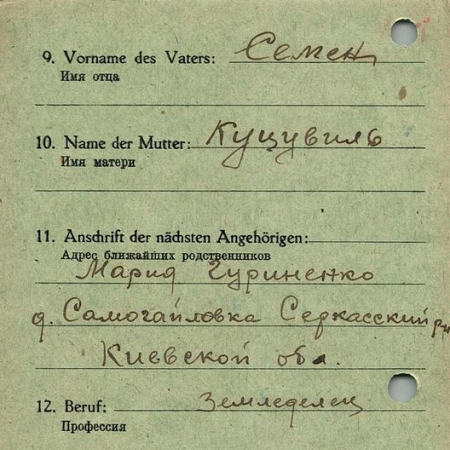 9. Vorname des Vaters: Семен
Имя отца
10. Name der Mutter: Куцувиль
Имя матери
11. Anschrift der nächsten Angehörigen:
Адрес ближайших родственников
Мария Гуриненко
д. Самогайловка Серкасский рн
Киевской обл.
12. Beruf: Земледелец
Профессия